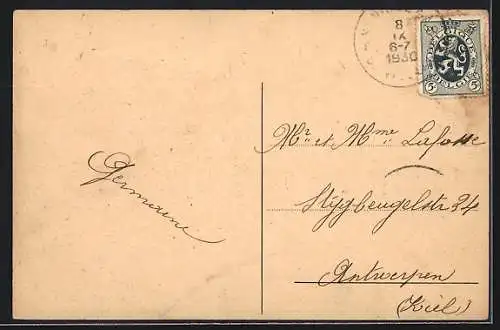 8
IX
6-7
1930
BELGIQUE
5 BELGIE 5
Germaine
Mr et Mme Lafosse
Stijgbeugelstr 34
Antwerpen
(Kiel)